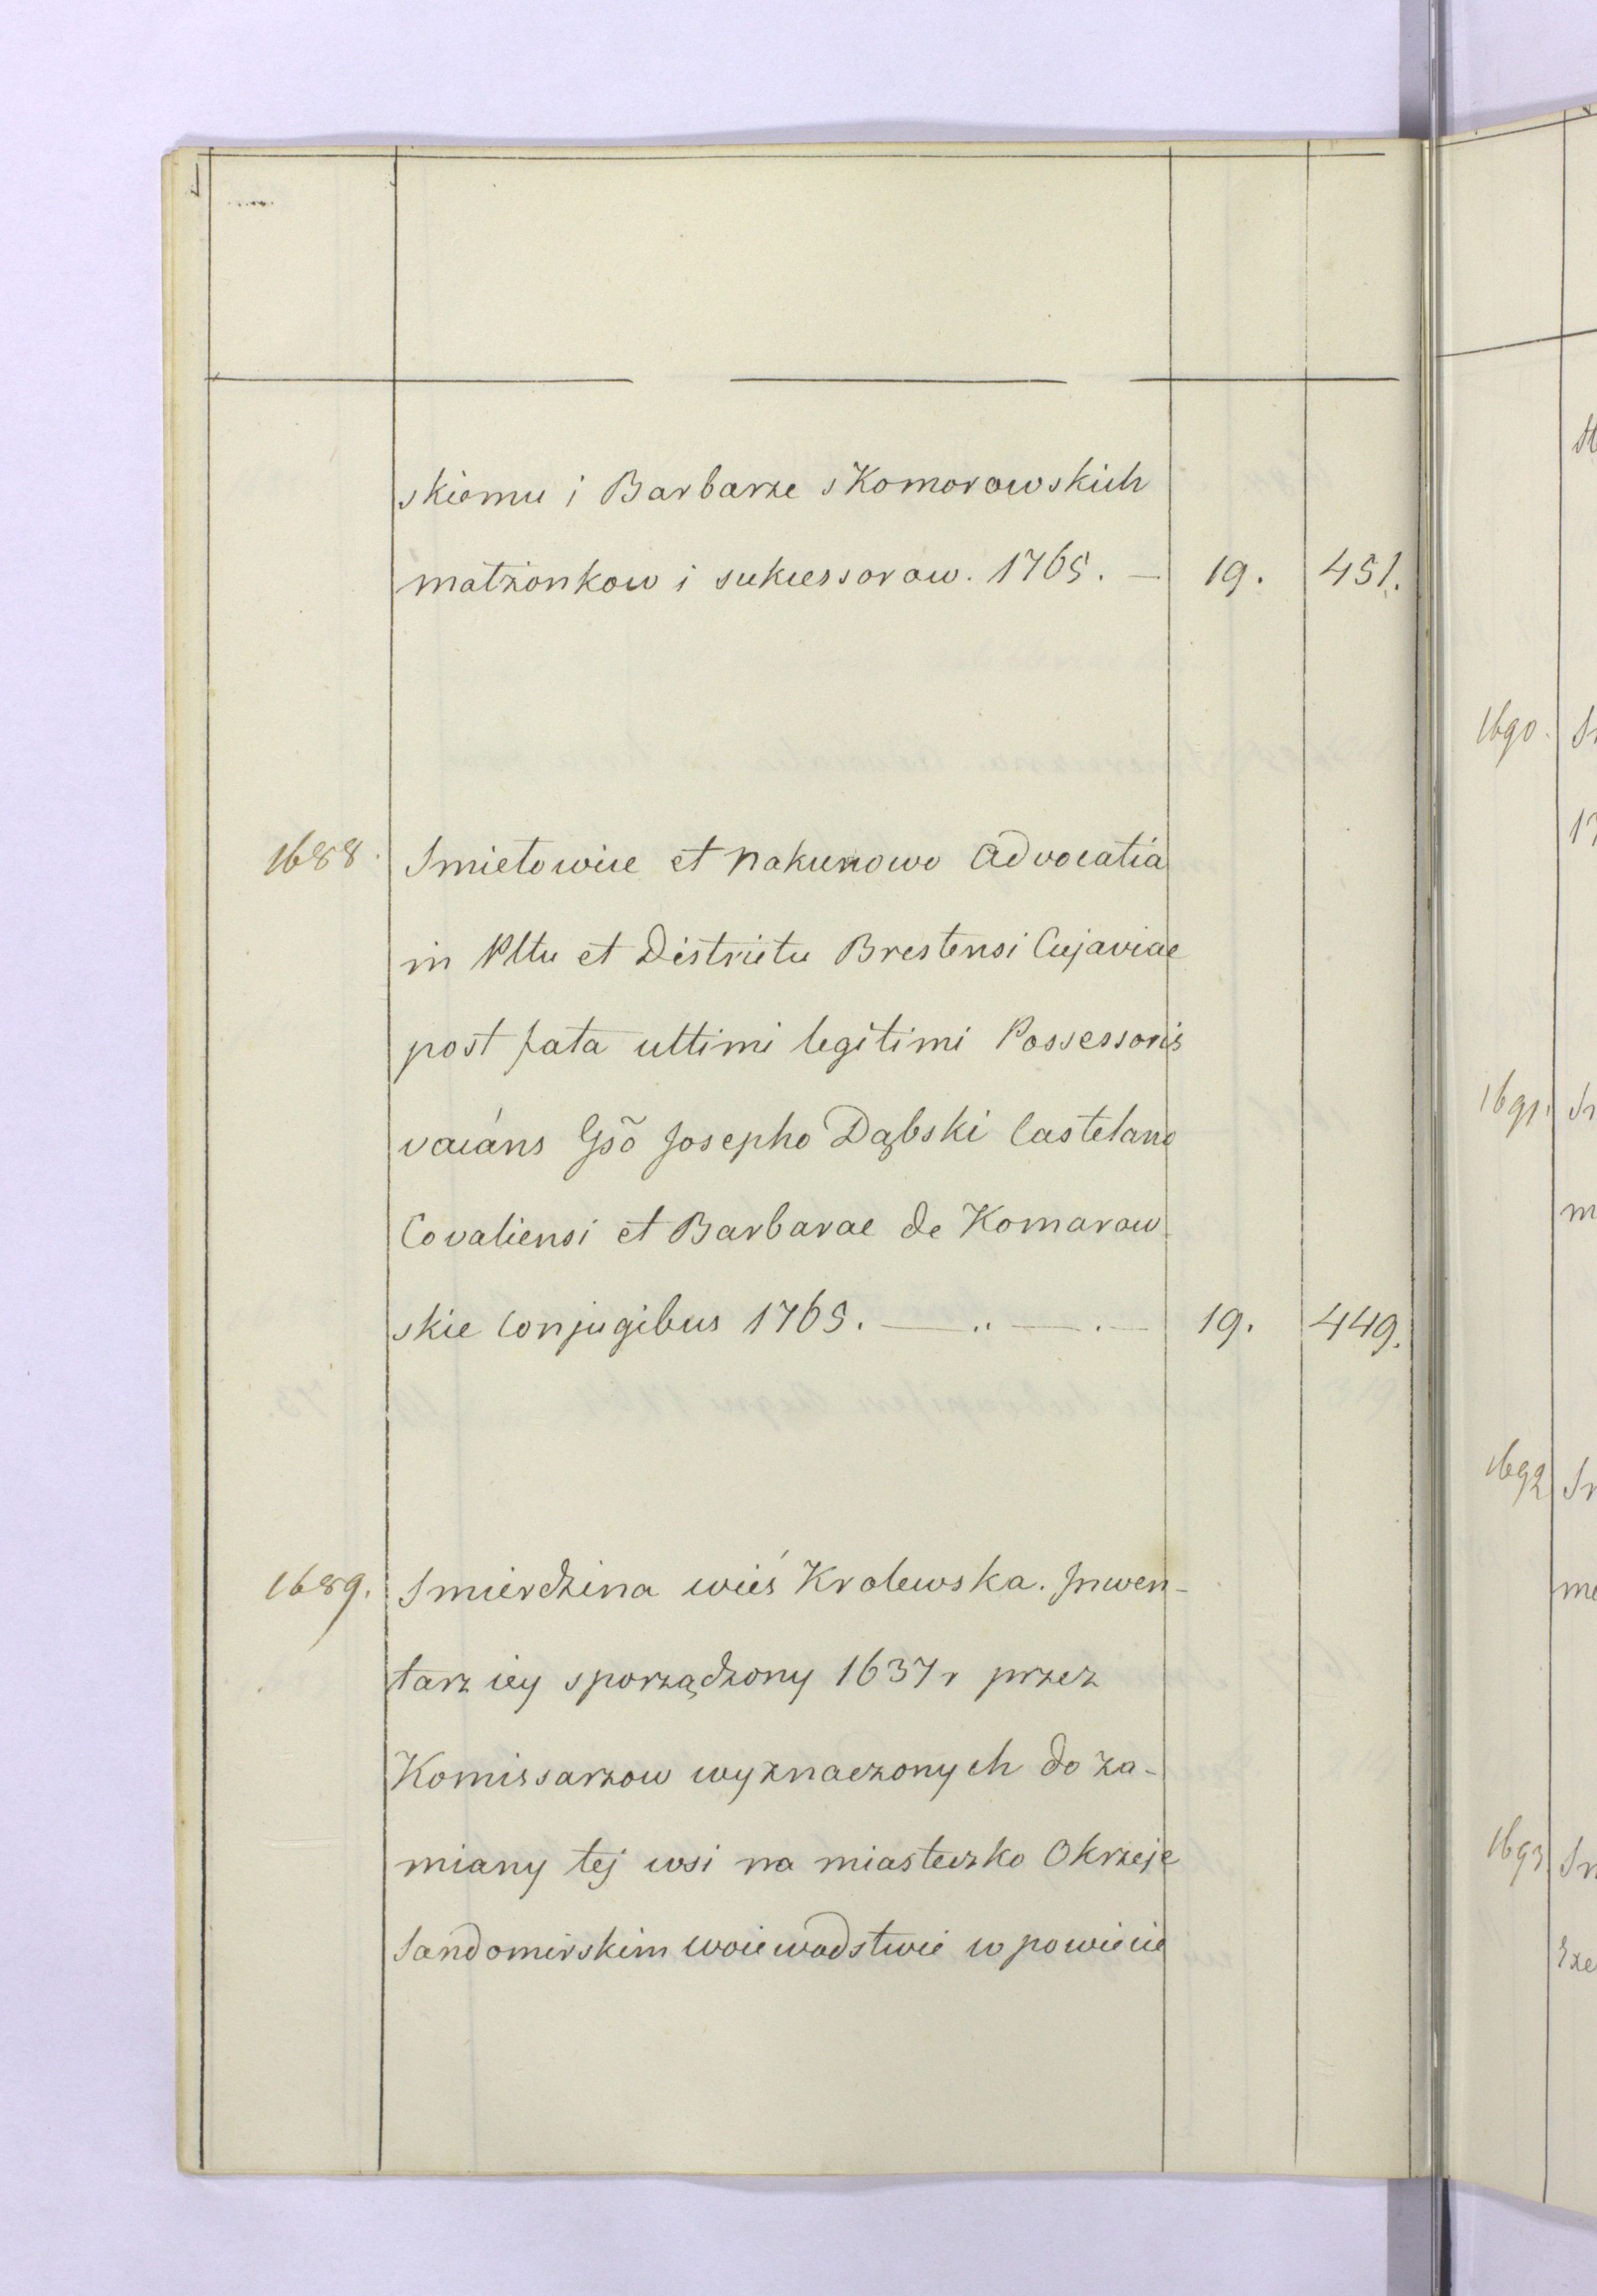 skiemu i Barbarze s Komorowskich
małżonkow i sukcessorow. 1765. — 19. 451.
1688. Smietowice et Nakunowo Advocatia
in Pltu et Districtu Brestensi Cujaviae
post fata ultimi legitimi Possessoris
vacans Gsõ Josepho Dąbski Castelano
Covaliensi et Barbarae de Komarow
skie Conjugibus 1765. — .. — . — 19. 449.
1689. Smierdzina wieś Krolewska. Inwen-
tarz iey sporządzony 1637 r przez
Komissarzow wyznaczonych do za-
miany tej wsi na miasteczko Okrzeje
Sandomirskim woiewodstwie w powiecie
1690.
1691.
1692
1693